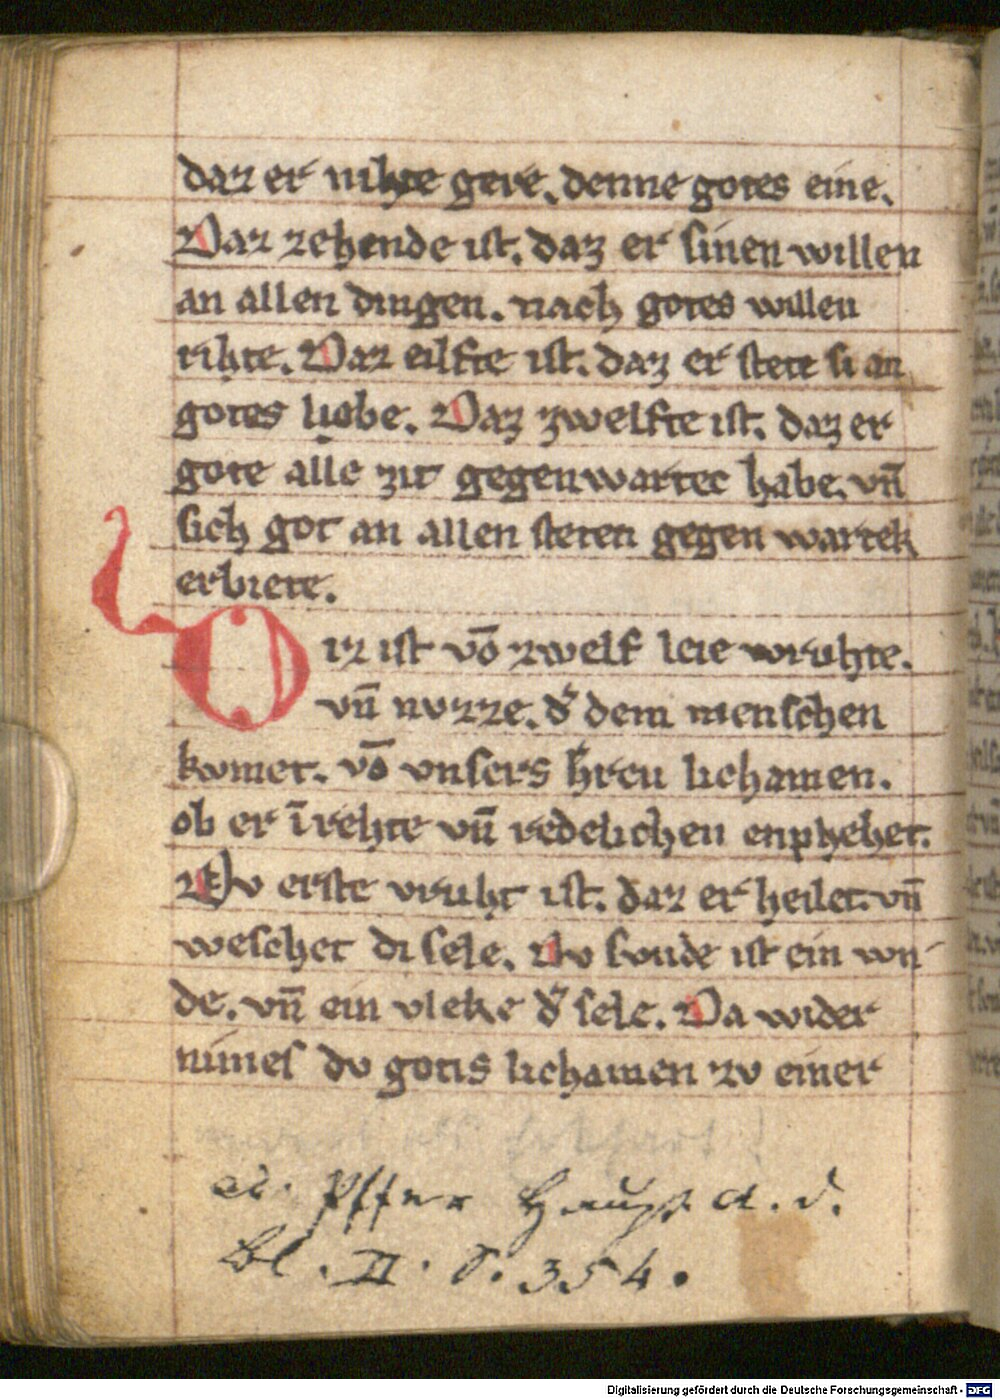 daz er nihte gere. denne gotes eine.
Daz zehende ist. daz er sinen willen
an allen dingen. nach gotes willen
rihte. Daz eilfte ist. daz er stete si an
gotes liobe. Daz zwelfte ist. daz er
gote alle zit gegenwartec habe. vn̄
sich got an allen steten gegen wartek
erbiete.
Diz ist vō zwelf leie wruhte.
vn̄ nvzze. d' dem menschen
kvmet. vō vnsers h̄ren lichamen.
ob er ī rehte vn̄ redelichen enphehet.
Dv erste vruht ist. daz er heilet. vn̄
weschet di sele. Dv svnde ist ein wn-
de. vn̄ ein vleke d' sele. Da wider
nimes dv gotis lichamen zv einer
Haupt a. d.
Bl. II. S. 354.
Digitalisierung gefördert durch die Deutsche Forschungsgemeinschaft - DFG